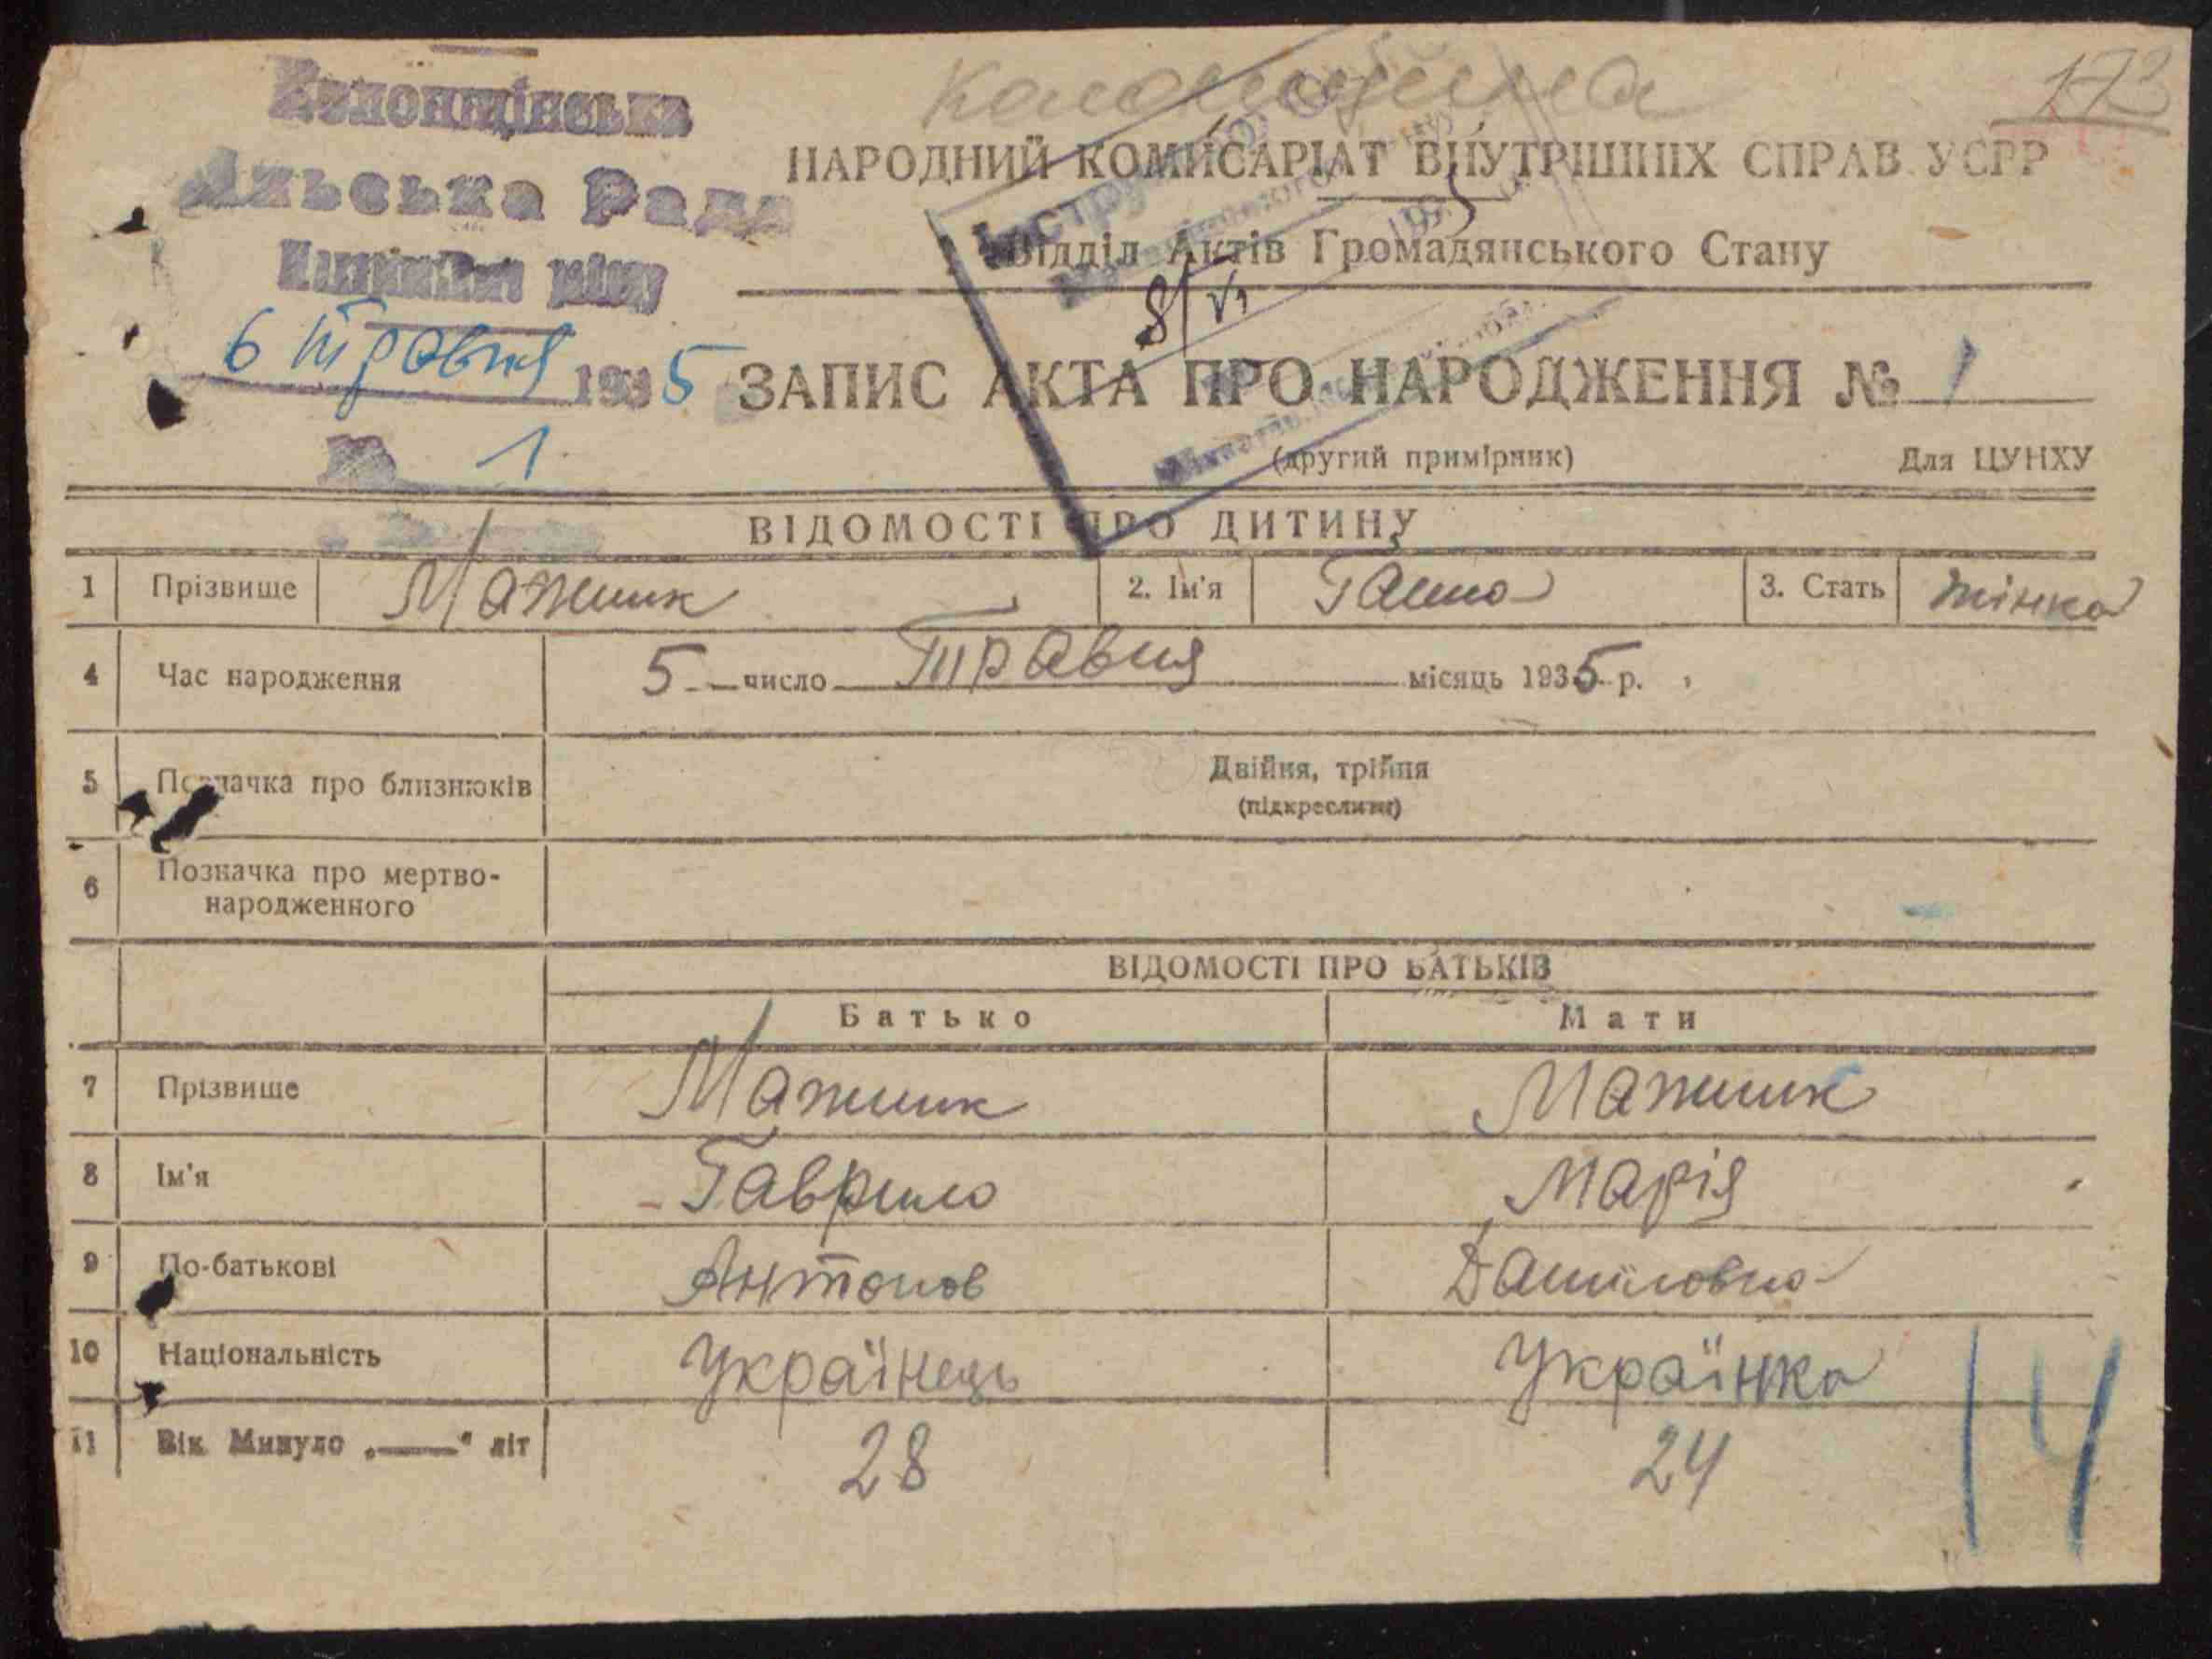 Колонщинська
173
Сільська Рада
НАРОДНИЙ КОМІСАРІАТ ВНУТРІШНІХ СПРАВ УСРР
Відділ Актів Громадянського Стану
8/VI
6 травня 1935
ЗАПИС АКТА ПРО НАРОДЖЕННЯ № 1
№ 1
(другий примірник)
Для ЦУНХУ
ВІДОМОСТІ ПРО ДИТИНУ
1 Прізвище Мажник 2. Ім'я Ганна 3. Стать жінка
4 Час народження 5 число Травня місяць 1935 р.
5 Позначка про близнюків Двійня, трійня
(підкреслити)
6 Позначка про мертво-
народженного
ВІДОМОСТІ ПРО БАТЬКІВ
Батько Мати
7 Прізвище Мажник Мажник
8 Ім'я Гаврило Марія
9 По-батькові Антонов Даниловна
10 Національність Українець Українка
11 Вік Минуло „——“ літ 28 24
14